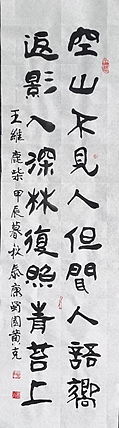 空山不見人但聞人語響
返影入深林復照青苔上
王維鹿柴甲辰暮秋泰康蜀園黄克